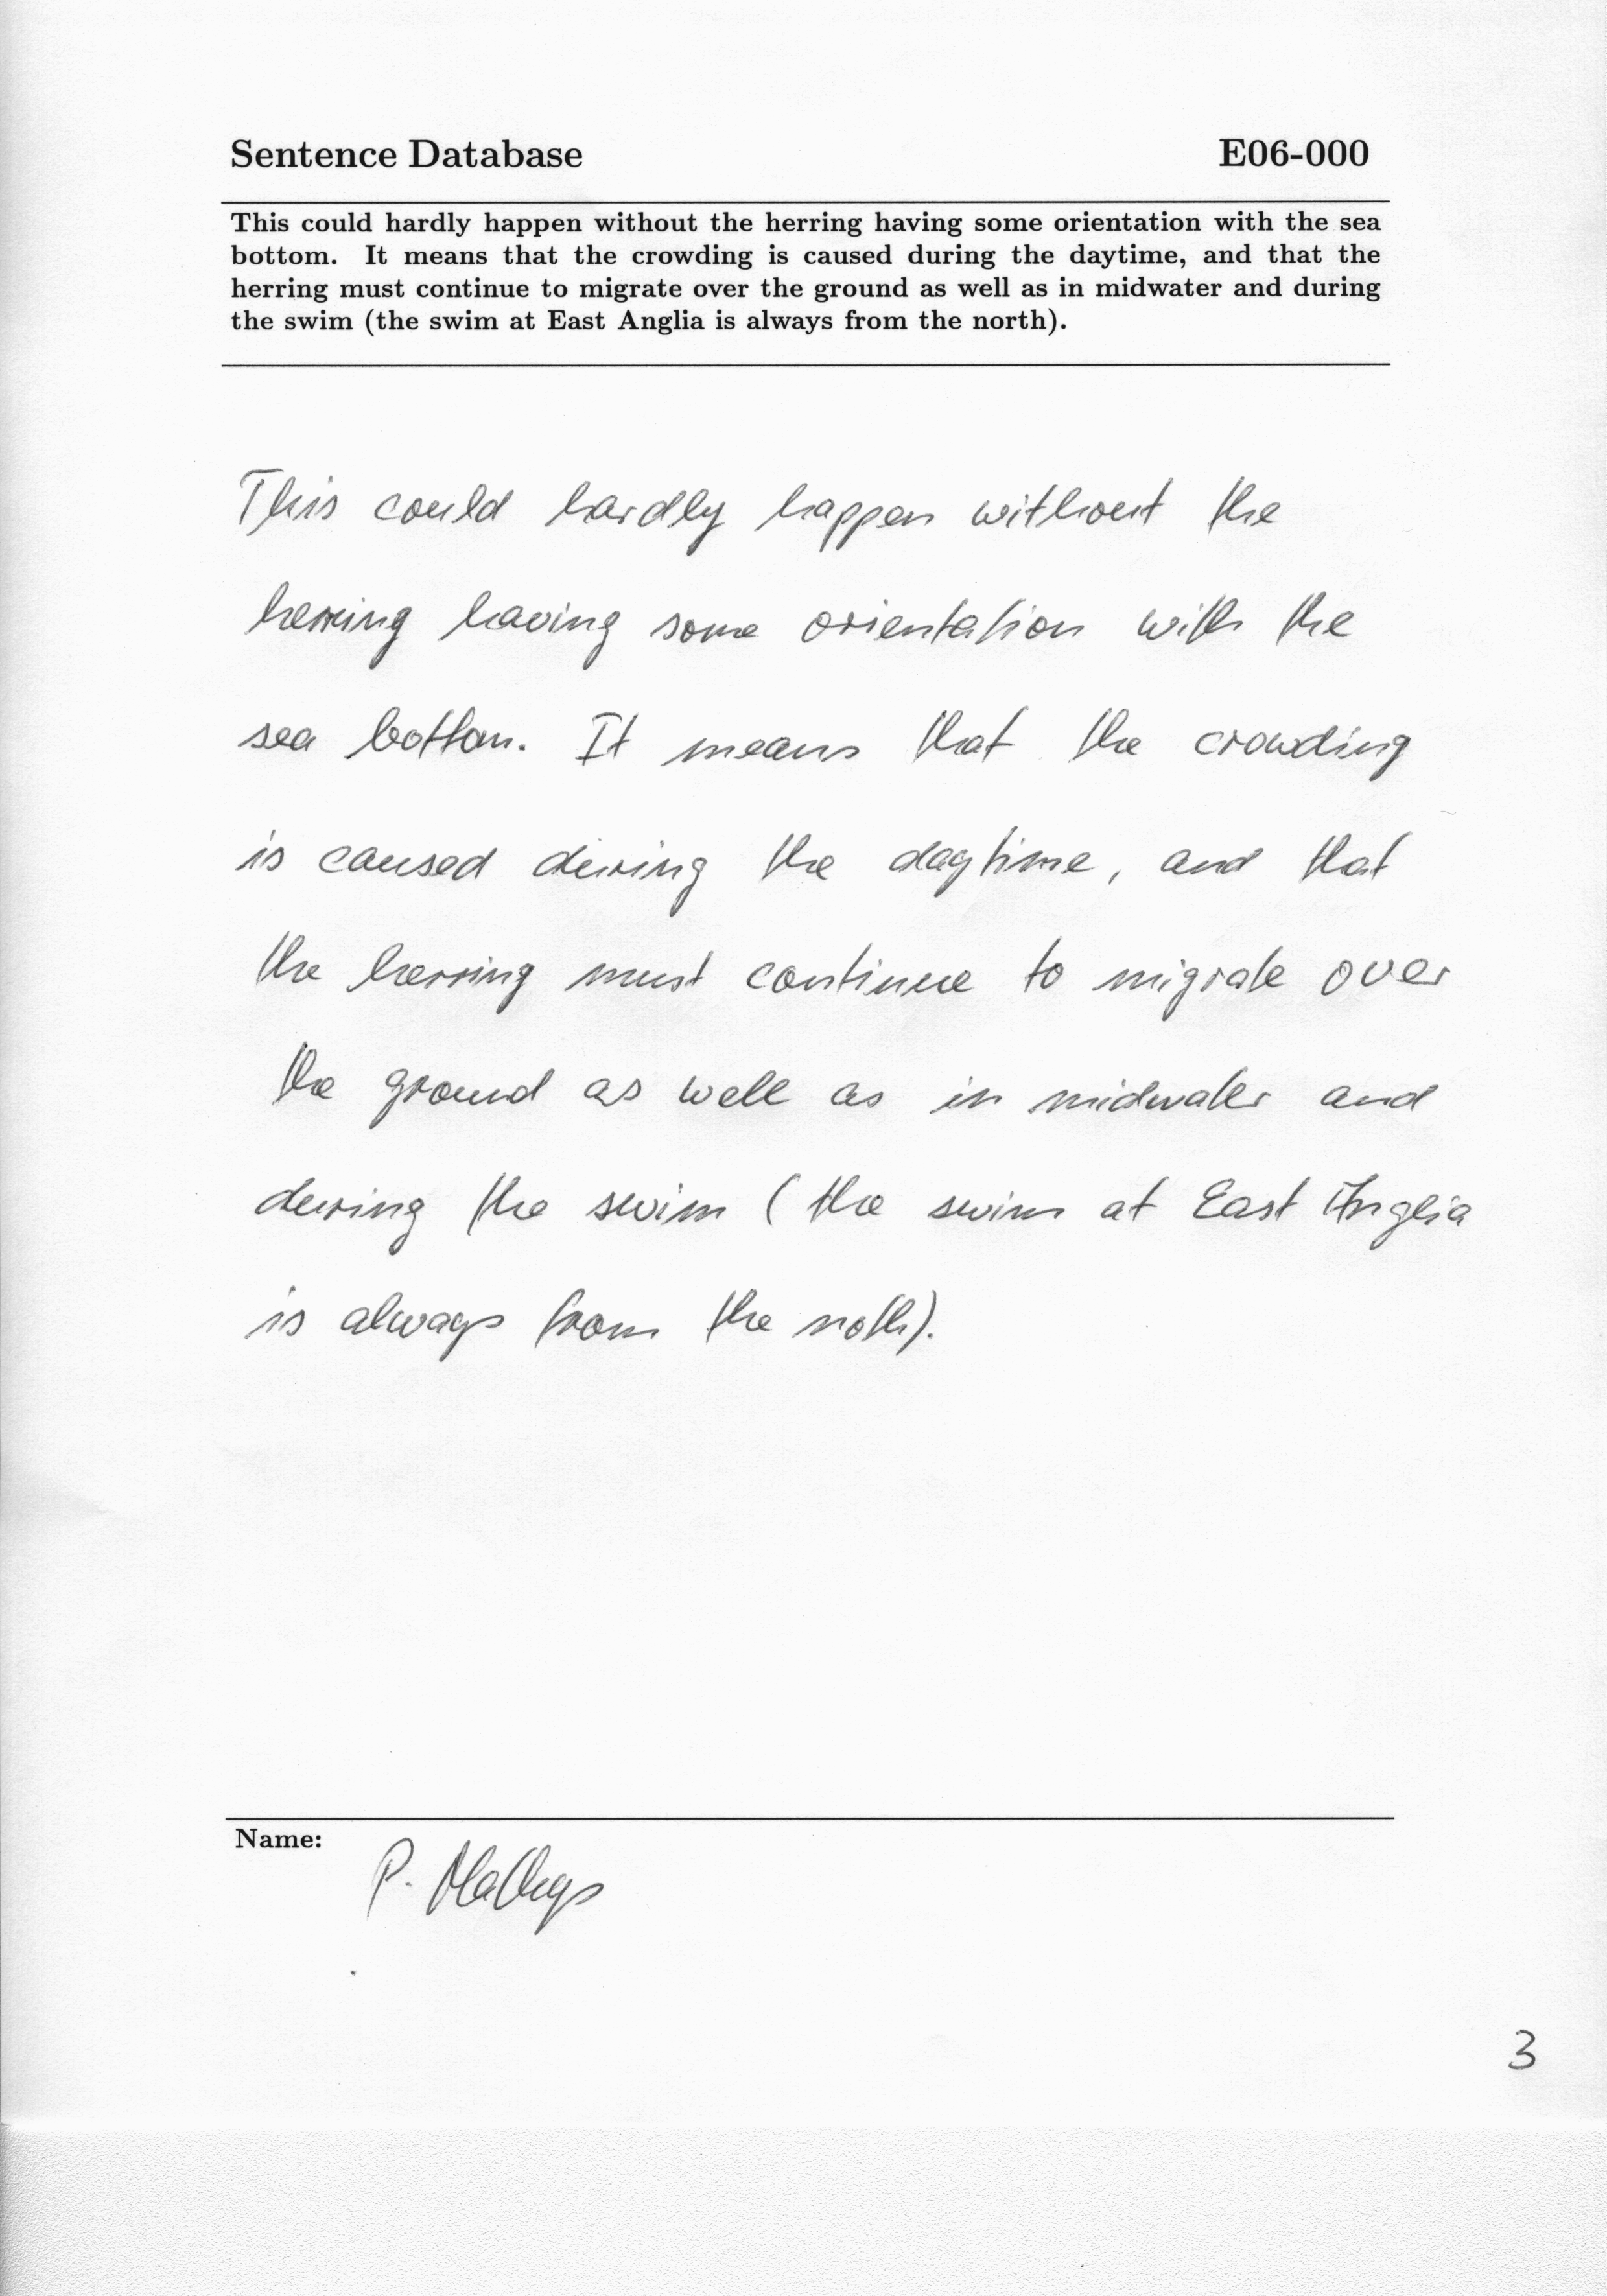 Sentence Database E06-000
This could hardly happen without the herring having some orientation with the sea
bottom. It means that the crowding is caused during the daytime, and that the
herring must continue to migrate over the ground as well as in midwater and during
the swim (the swim at East Anglia is always from the north).
This could hardly happen without the
herring having some orientation with the
sea bottom. It means that the crowding
is caused during the daytime, and that
the herring must continue to migrate over
the ground as well as in midwater and
during the swim (the swim at East Anglia
is always from the noth).
Name:
P.
3